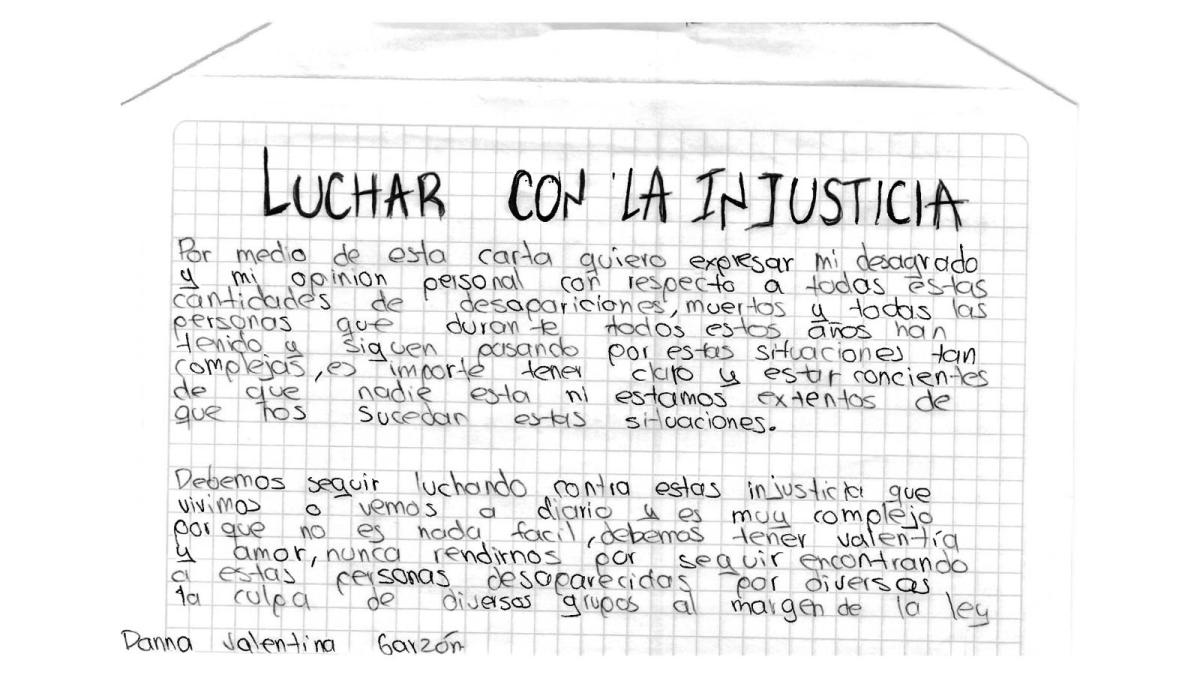 LUCHAR CON LA INJUSTICIA
Por medio de esta carta quiero expresar mi desagrado
y mi opinion personal con respecto a todas estas
cantidades de desapariciones, muertos y todas las
personas que durante todos estos años han
tenido y siguen pasando por estas situaciones tan
complejas, es importe tener claro y estar concientes
de que nadie esta ni estamos extentos de
que nos sucedan estas situaciones.
Debemos seguir luchando contra estas injusticia que
vivimos o vemos a diario y es muy complejo
porque no es nada facil, debemos tener valentía
y amor, nunca rendirnos por seguir encontrando
a estas personas desaparecidas por diversas
la culpa de diversos grupos al margen de la ley
Danna Valentina Garzón